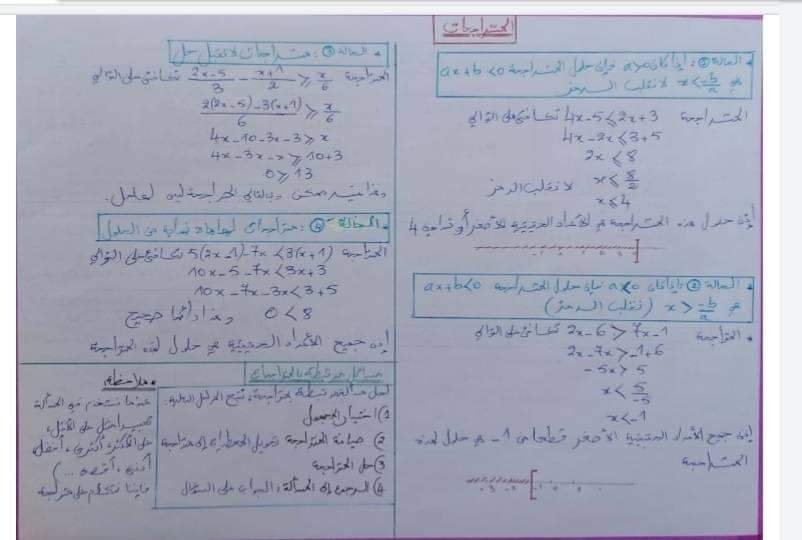 المتراجحات
• الحالة ①: إذا كان a>0 فإن حلول المتراجحة ax+b<0
هي x<-b/a لا نقلب الرمز
المتراجحة 4x-5⩽2x+3 تكافئ على التوالي
4x-2x⩽3+5
2x⩽8
x⩽8/2 لا نقلب الرمز
x⩽4
إذن حلول هذه المتراجحة هي الأعداد الحقيقية الأصغر أو تساوي 4
• الحالة ②: إذا كان a<0 فإن حلول المتراجحة ax+b<0
هي x>-b/a (نقلب الرمز)
• المتراجحة 2x-6>7x-1 تكافئ على التوالي
2x-7x>-1+6
-5x>5
x<5/-5
x<-1
إذن جميع الأعداد الحقيقية الأصغر قطعا من -1 هي حلول لهذه
المتراجحة
• الحالة ③: متراجحات لا تقبل حل
المتراجحة (2x-5)/3-(x+1)/2⩾x/6 تكافئ على التوالي
(2(2x-5)-3(x+1))/6⩾x/6
4x-10-3x-3⩾x
4x-3x-x⩾10+3
0⩾13
وهذا غير ممكن وبالتالي المتراجحة ليس لها حل.
• الحالة ④: متراجحات لها عدد لا نهاية من الحلول
المتراجحة 5(2x-1)-7x<3(x+1) تكافئ على التوالي
10x-5-7x<3x+3
10x-7x-3x<3+5
0<8 وهذا دائما صحيح
إذن جميع الأعداد الحقيقية هي حلول لهذه المتراجحة
مسائل مرتبطة بالمتراجحات
لحل مسألة مرتبطة بمتراجحة، نتبع المراحل التالية:
1) اختيار المجهول
2) صياغة المتراجحة تحويل المعطيات إلى متراجحة
3) حل المتراجحة
4) الرجوع إلى المسألة: الجواب على السؤال
• ملاحظة:
عندما نستخدم في المسألة
تعبير مثل على الأقل،
على الأكثر، أكبر، أصغر
...)
فإننا نتكلم على متراجحة